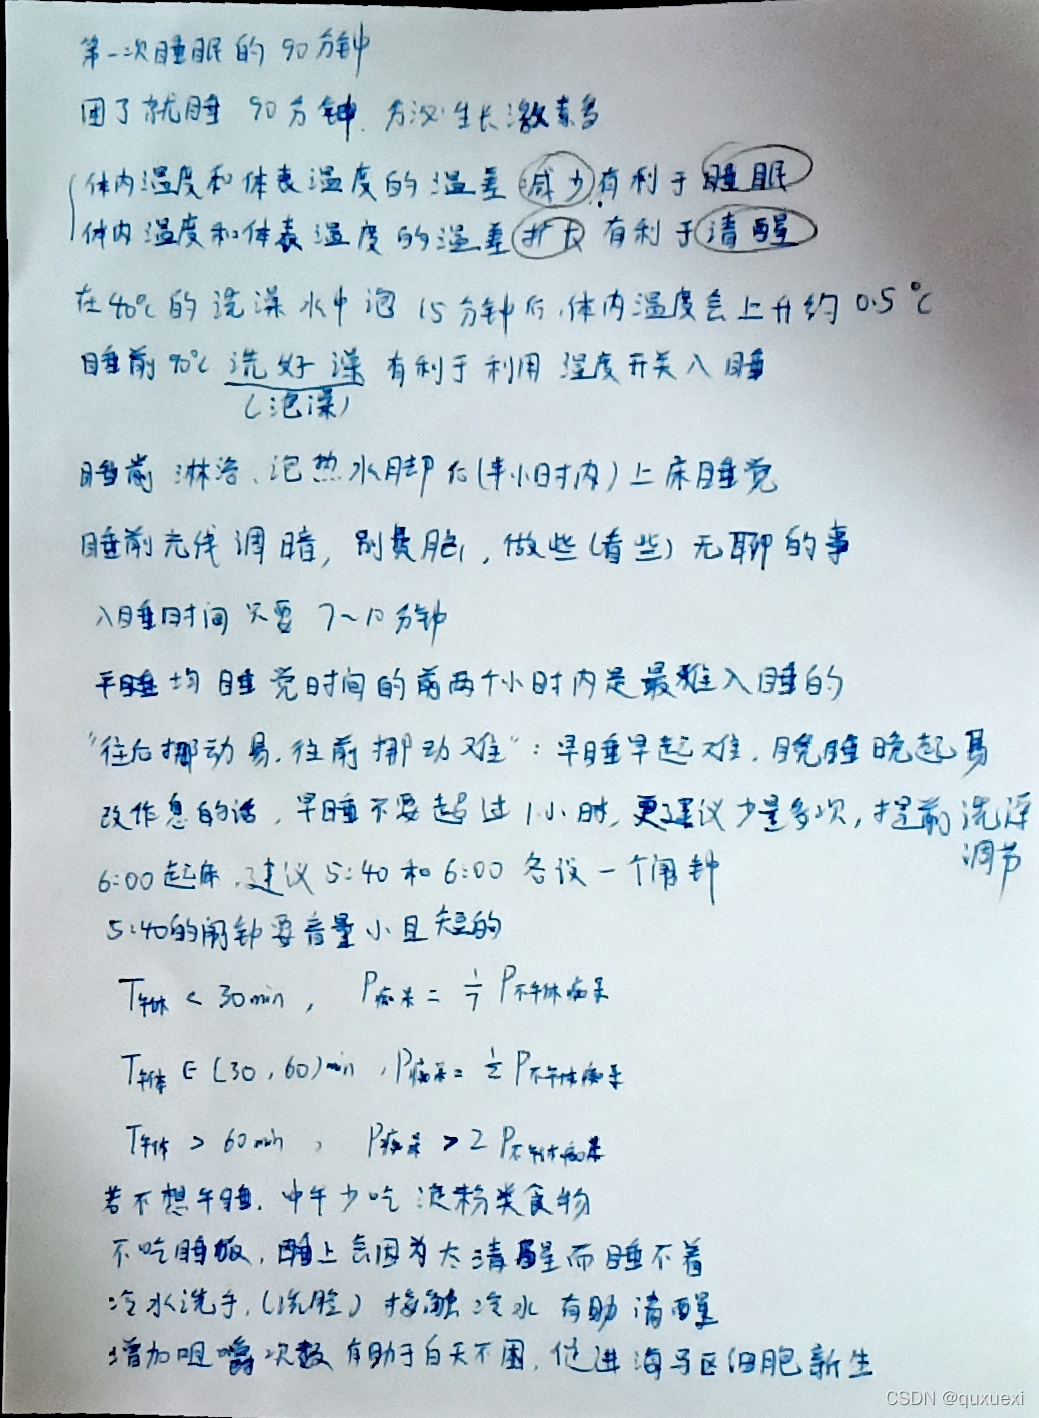 第一次睡眠的90分钟
困了就睡 90分钟、分泌生长激素多
体内温度和体表温度的温差减少有利于睡眠
体内温度和体表温度的温差扩大有利于清醒
在40℃的洗澡水中泡15分钟后,体内温度会上升约0.5℃
睡前90℃洗好澡有利于利用温度开关入睡
(泡澡)
睡前淋浴、泡热水脚后(半小时内)上床睡觉
睡前光线调暗,别费脑,做些(看些)无聊的事
入睡时间只要7~10分钟
平睡均睡觉时间的前两个小时内是最难入睡的
"往后挪动易,往前挪动难":早睡早起难,晚睡晚起易
改作息的话,早睡不要超过1小时,更建议少量多次,提前洗澡
调节
6:00起床,建议5:40和6:00各设一个闹钟
5:40的闹钟要音量小且短的
T午休 < 30min, P痴呆 = 1/7 P不午休痴呆
T午休 ∈ (30,60)min, P痴呆 = 1/2 P不午休痴呆
T午休 > 60min, P痴呆 > 2 P不午休痴呆
若不想午睡,中午少吃淀粉类食物
不吃晚饭,晚上会因为太清醒而睡不着
冷水洗手,(洗脸)接触冷水有助清醒
增加咀嚼次数有助于白天不困,促进海马区细胞新生
CSDN @quxuexi